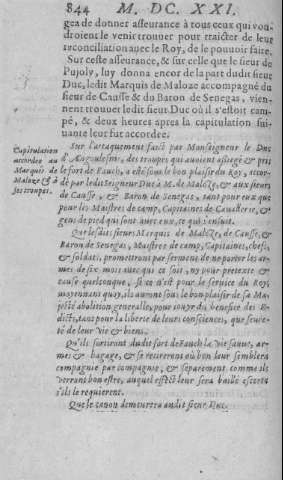 844 M. DC. XXI.
gea de donner asseurance à tous ceux qui vou-
droient le venir trouver pour traicter de leur
reconciliation auec le Roy, de le pouuoir faire.
Sur ceste asseurance, & sur celle que le sieur de
Pujoly, luy donna encor de la part dudit sieur
Duc, ledit Marquis de Maloze accompagné du
sieur de Causse & du Baron de Senegas, vien-
nent trouuer ledit sieur Duc où il s'estoit cam-
pé, & deux heures apres la capitulation sui-
uante leur fut accordee.
Capitulation
accordee au
Marquis de
Maloze & à
ses troupes.
Sur l'attaquement faict par Monseigneur le Duc
d'Angoulesme, des troupes qui auoient assiegé & pris
le fort de Fauch, a esté sous le bon plaisir du Roy, accor-
dé par ledit Seigneur Duc à M. de Maloze, & aux sieurs
de Causse, & Baron de Senegas, tant pour eux que
pour les Maistres de camp, Capitaines de Cauallerie, &
gens de pied qui sont auec eux, ce qui ensuit.
Que lesdits sieurs Marquis de Maloze, de Causse, &
Baron de Senegas, Maistres de camp, Capitaines, chefs,
& soldats, promettront par serment de ne porter les ar-
mes de six mois auec qui ce soit, ny pour pretexte &
cause quelconque, si ce n'est pour le seruice du Roy,
moyennant quoy, ils auront sous le bon plaisir de sa Ma-
jesté abolition generalle, pour jouyr du benefice des E-
dicts, tant pour la liberté de leurs consciences, que seure-
té de leur vie & biens.
Qu'ils sortiront dudit fort de Fauch la vie sauue, ar-
mes & bagage, & se retireront où bon leur semblera
compagnie par compagnie, & separément comme ils
verront bon estre, auquel effect leur sera baillé escorte
s'ils le requierent.
Que le canon demeurera audit sieur Duc.